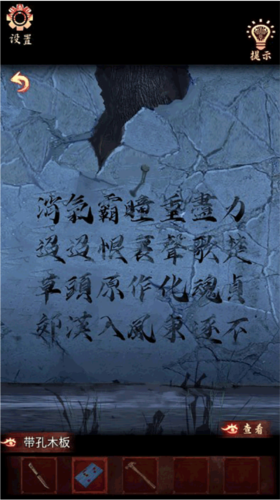 设置
提示
消氣霸瞳堇盡力
迢迢恨裏聲歌楚
草頭原作化魂貞
郊漢入風東逐不
查看
带孔木板